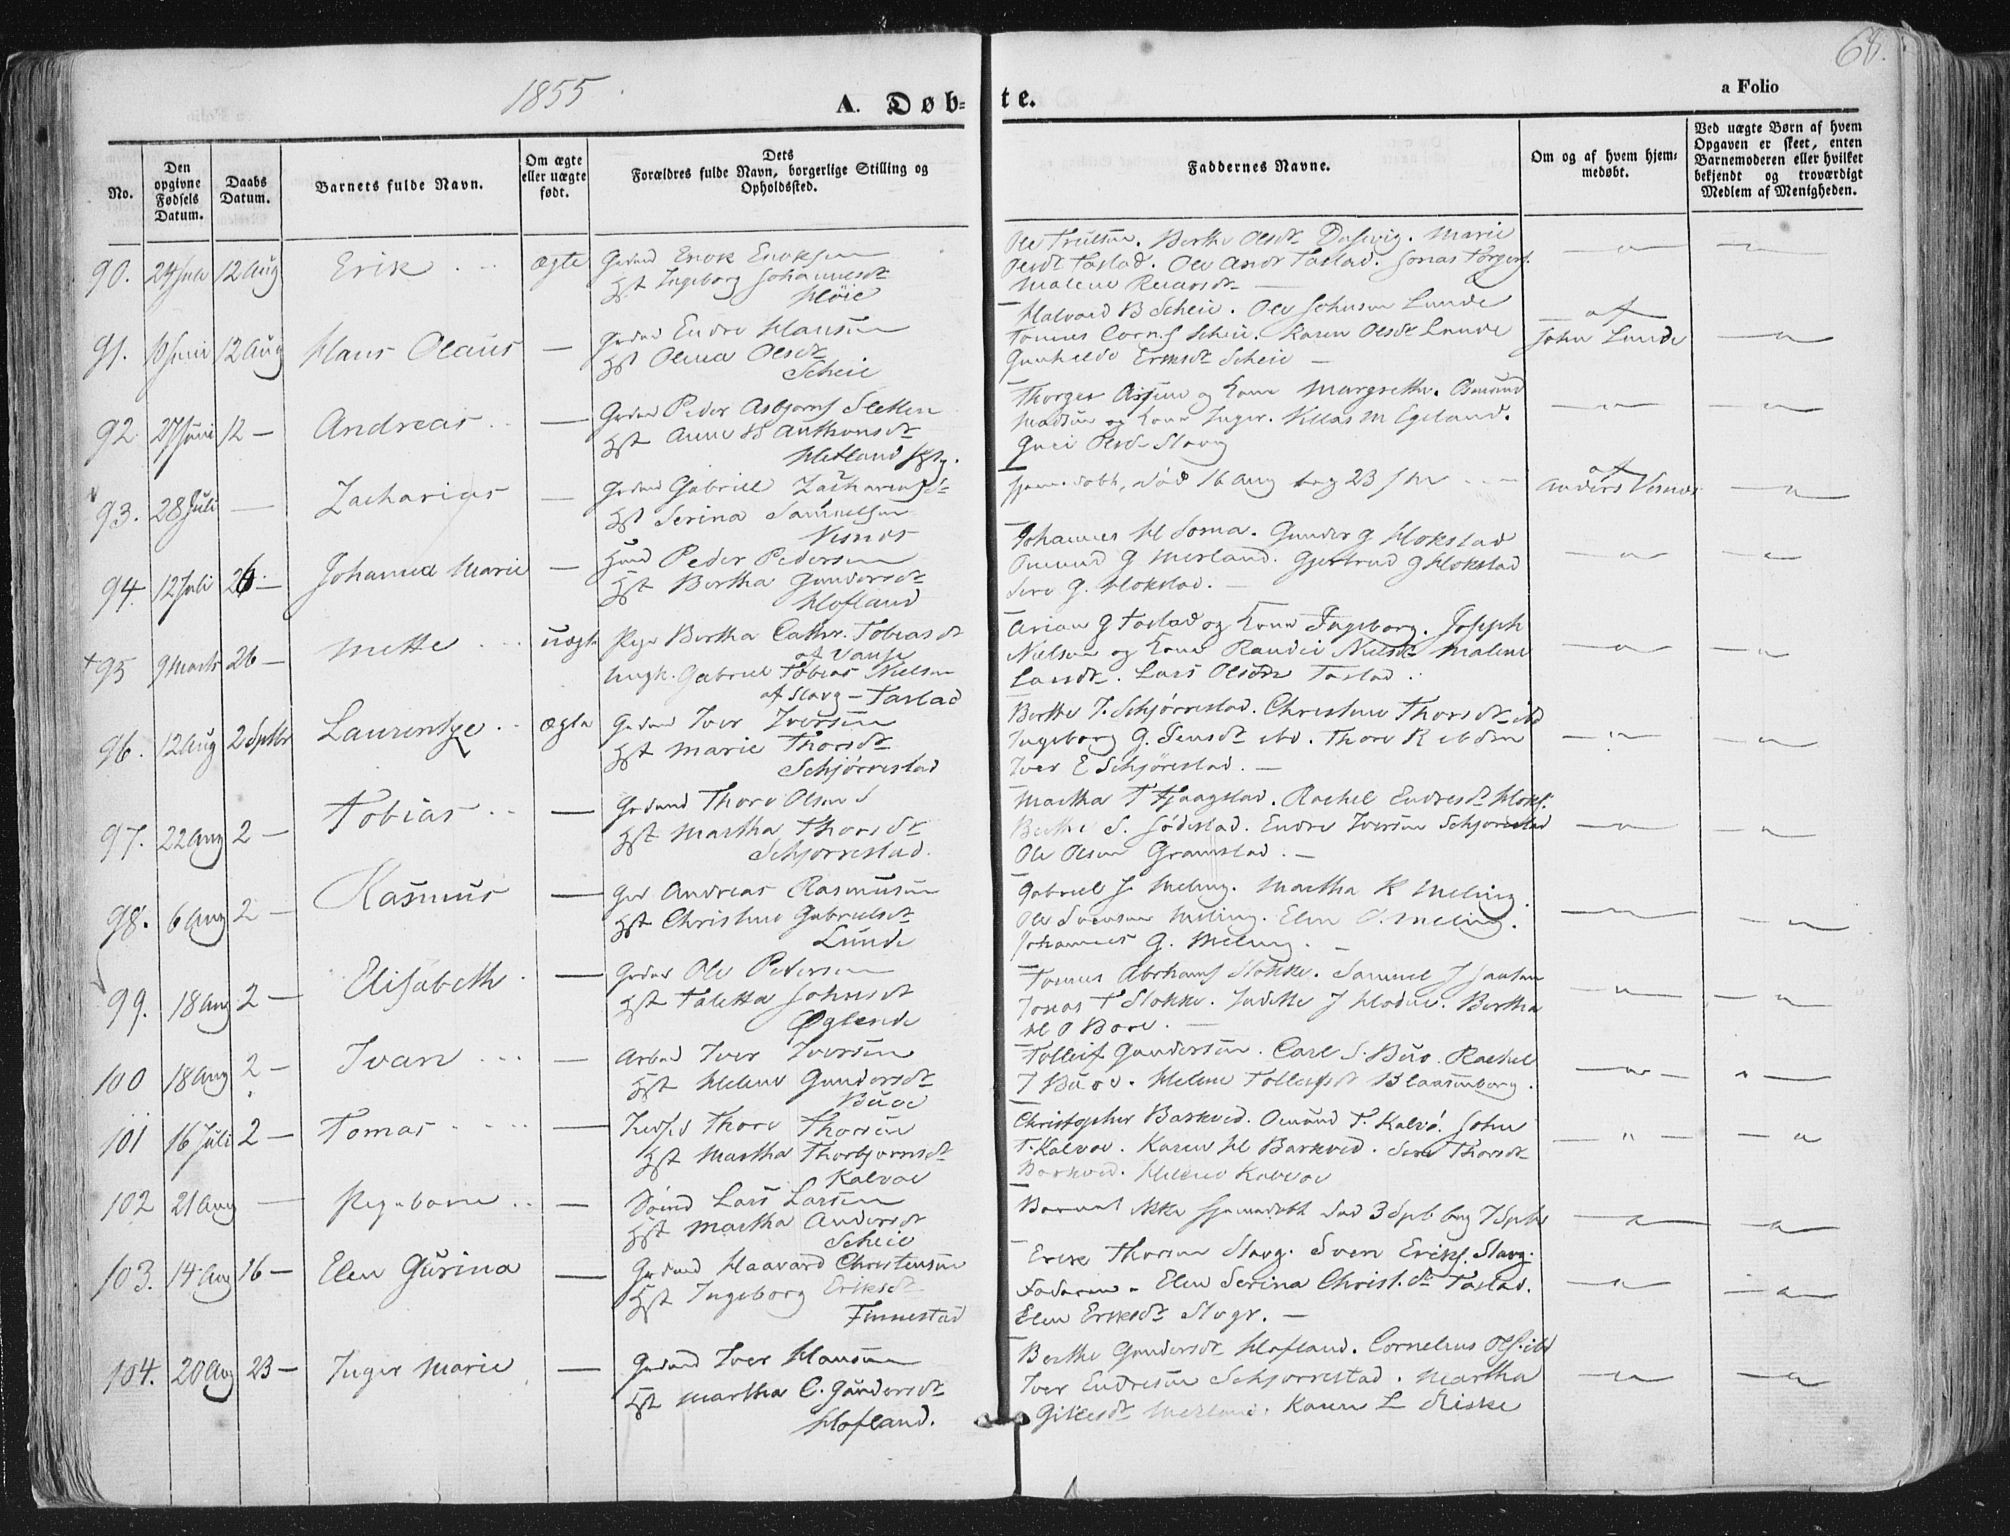 1855
68.
A. Døbte.
a Folio
No.
Den opgivne Fødsels Datum.
Daabs Datum.
Barnets fulde Navn.
Om ægte eller uægte født.
Dets Forældres fulde Navn, borgerlige Stilling og Opholdssted.
Faddernes Navne.
Om og af hvem hjemmedøbt.
Ved uægte Børn af hvem Opgaven er skeet, enten Barnemoderen eller hvilket bekjendt og troværdigt Medlem af Menigheden.
90. 24 Juli 12 Aug Erik ægte Grdmd Enok Enoksen
Hst Ingeborg Johannesdt
Høie
Ole Truelsen. Berthe Olsdt Dusevig. Marie
Olsdt Tastad. Ole Andr Tastad. Jonas Torgers.
Malene
91. Juni 12 Aug Hans Olaus — Grdmd Endre Hansen
Hst Olena Olsdt
Scheie
Halvard B Scheie. Ole Johnsen Lunde
Tonnes Corns Scheie. Karen Olsdt Lunde
Gunhilde Eriksdt Scheie —
af
John Lunde
92 27 Juni 12 — Andreas — Grdmd Peder Asbjørns Sletten
Hst Anne Anthonsdt
Hetland
Thorger Assen og Kone Margrethe. Osmund
Madsen og Kone Inger. Killas M Egeland.
Guri Olsdt Slavg
93. 28 Juli — Zacharias — Grdmd Gabriel Zachariass
Hst Serina Samuelsen
Visnes
hjem.døbt, død 16 Aug beg 23
af
Anders Visnes
94. 12 Juli 26 — Johanna Marie — Hmd Peder Pedersen
Hst Bertha Gundersdt
Hofland
Johannes H Soma. Gunder G Hokstad
Omund G Meeland. Gjertrud G Hokstad
Sire G. Hokstad. —
95 9 Marts 26 — Mette uægte Pige Bertha Cathr. Tobiasdt
af Vanse
Ungk. Gabriel Tobias Nielsen
af Slavg — Tastad
Arian G Tastad og Kone Ingeborg. Joseph
Nielsen og Kone Randie Nielsdt Malene
Larsdt. Lars Olsen Tastad.
96. 12 Aug 2 Sptbr Laurentze ægte Grdmd Iver Iversen
Hst Marie Thorsdt
Schjørrestad
Berthe I. Schjørrestad. Christine Thorsdt ibd
Ingeborg G. Jensdt ibd. Thore R
Iver E Schjørestad. —
97. 22 Aug 2 — Tobias — Grdmd Thore Olsen
Hst Martha Thorsdt
Schjørrestad.
Martha T Tjaagstad. Rachel Endresdt Hokst.
Berthe S. Sødestad. Endre Iversen Schjørrestad
Ole Olsen Gramstad. —
98. 6 Aug 2 — Rasmus — Grd Andreas Rasmusen
Hst Christine Gabrielsdt
Lunde
Gabriel J Meling. Martha R Meling.
Ole Svensen Meling. Elen O. Meling.
Johannes G. Meling. —
99. 18 Aug 2 — Elisabeth — Grdmd Ole Pedersen
Hst Taletta Johnsdt
Øglende
Tonnes Abrhams Stokke. Samuel J
Jonas T Stokke. J Hodne. Bertha
H O Bore. —
100 18 Aug 2 — Ivan — Arbmd Iver Iversen
Hst Helene Gundersdt
Buøe
Tolleif Gundersen. Carl S. Buø. Rachel
T Buøe. Helene Tolleifsdt Blaasenborg.
101 16 Juli 2 — Tomas — Thore Thorsen
Hst Martha Thorbjørnsdt
Kalvøe
Christopher Barkved. Omund T. Kalvø. John
T. Kalvøe. Karen H Barkved. Thorsdt
Barkved. Helene Kalvøe
102 21 Aug — Pigebarn — Lars Larsen
Hst Martha Andersdt
Scheie
Barnet ikke hjemmedøbt Død 3 Sptb beg 7 Sptb
103. 14 Aug 16 — Elen Gurina — Grdmd Haavard Christensen
Hst Ingeborg Eriksdt
Finnestad
Erik Thorsen Slavg. Sven Eriks. Slavg.
Faderen. Elen Serina Christ.dt Tastad.
Elen Eriksdt Slogv. —
104. 20 Aug 23 — Inger Marie — Grdmd Iver Hansen
Hst Martha C. Gundersdt
Hofland.
Berthe Gundersdt Hofland. Cornelius Ols. ibd
Iver Endresen Schjørrestad. Martha
Gillesdt Meeland. Karen L Riske